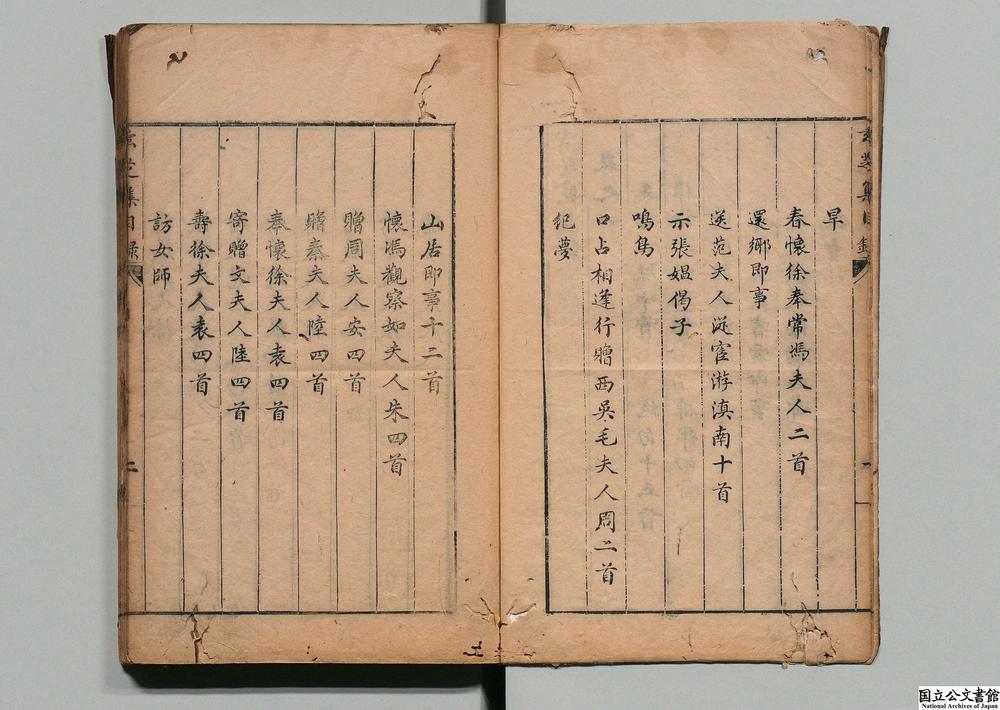 玄芝集目錄
一
旱
春懷徐奉常馮夫人二首
還鄉即事
送范夫人從宦游滇南十首
示張媪偈子
鳴鳥
口占相逢行贈西吳毛夫人周二首
紀夢
山居即事十二首
懷馮觀察如夫人朱四首
贈周夫人安四首
贈秦夫人陸四首
奉懷徐夫人袁四首
寄贈文夫人陸四首
壽徐夫人袁四首
訪女師
玄芝集目錄
二
国立公文書館
National Archives of Japan